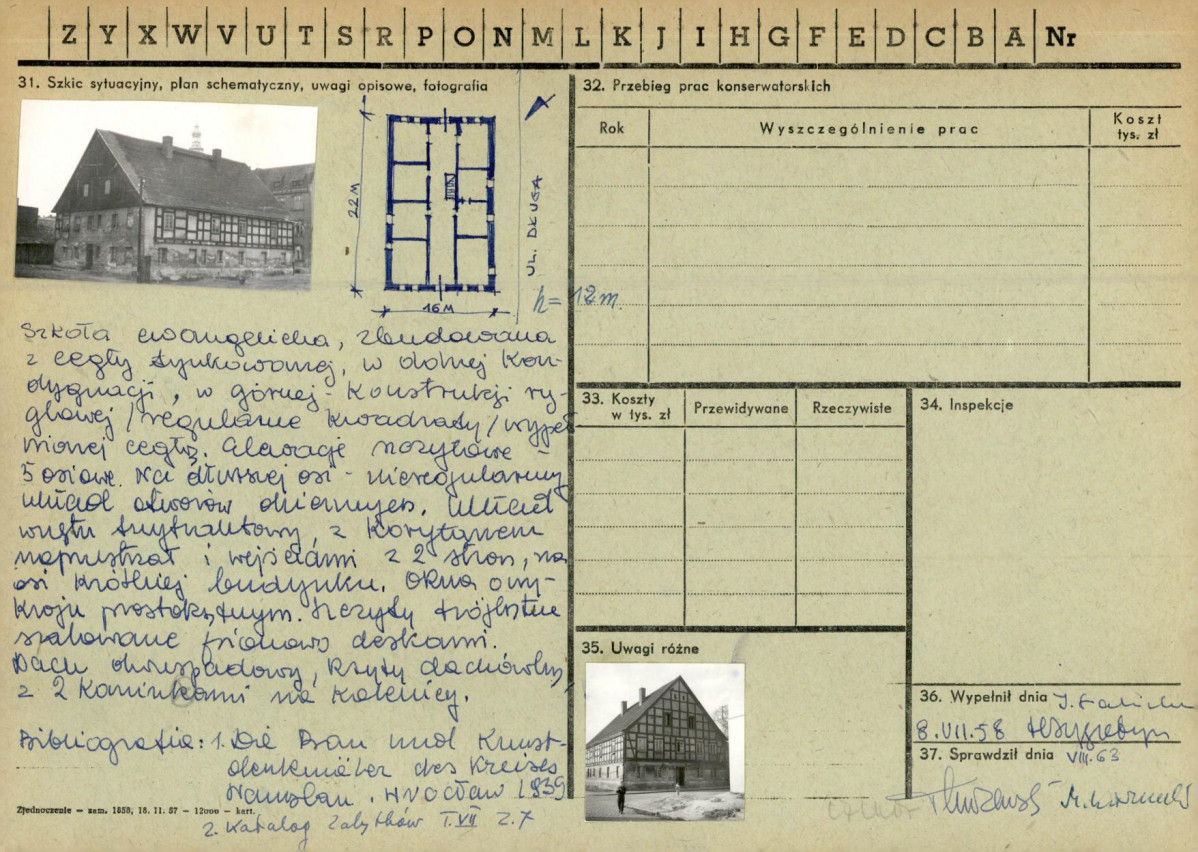 Z Y X W V U T S R P O N M L K J I H G F E D C B A Nr
31. Szkic sytuacyjny, plan schematyczny, uwagi opisowe, fotografia
22 M
16 M
UL. DŁUGA
h = 12 m.
Szkoła ewangelicka, zbudowana
z cegły tynkowanej, w dolnej kon-
dygnacji, w górnej - konstrukcji ry-
glowej /regularne kwadraty/ wypeł
nionej cegłą. Elewacje szczytowe -
5 osiowe. Na dłuższej osi - nieregularny
układ otworów okiennych. Układ
wnętrz trzytraktowy, z korytarzem
naprzestrzał i wejściami z 2 stron, na
osi krótkiej budynku. Okna o wy-
kroju prostokątnym. Szczyty trójkątne
szalowane pionowo deskami.
Dach dwuspadowy, kryty dachówką,
z 2 kominkami na kalenicy.
Bibliografia: 1. Die Bau und Kunst-
denkmäler des Kreises
Namslau. Wrocław 1939
2. Katalog Zabytków T. VII Z. 7
Zjednoczenie — zam. 1658, 16. 11. 57 — 12000 — kart.
32. Przebieg prac konserwatorskich
Rok
Wyszczególnienie prac
Koszt
tys. zł
33. Koszty
w tys. zł
Przewidywane
Rzeczywiste
34. Inspekcje
35. Uwagi różne
36. Wypełnił dnia
8.VII.58
37. Sprawdził dnia VIII.63